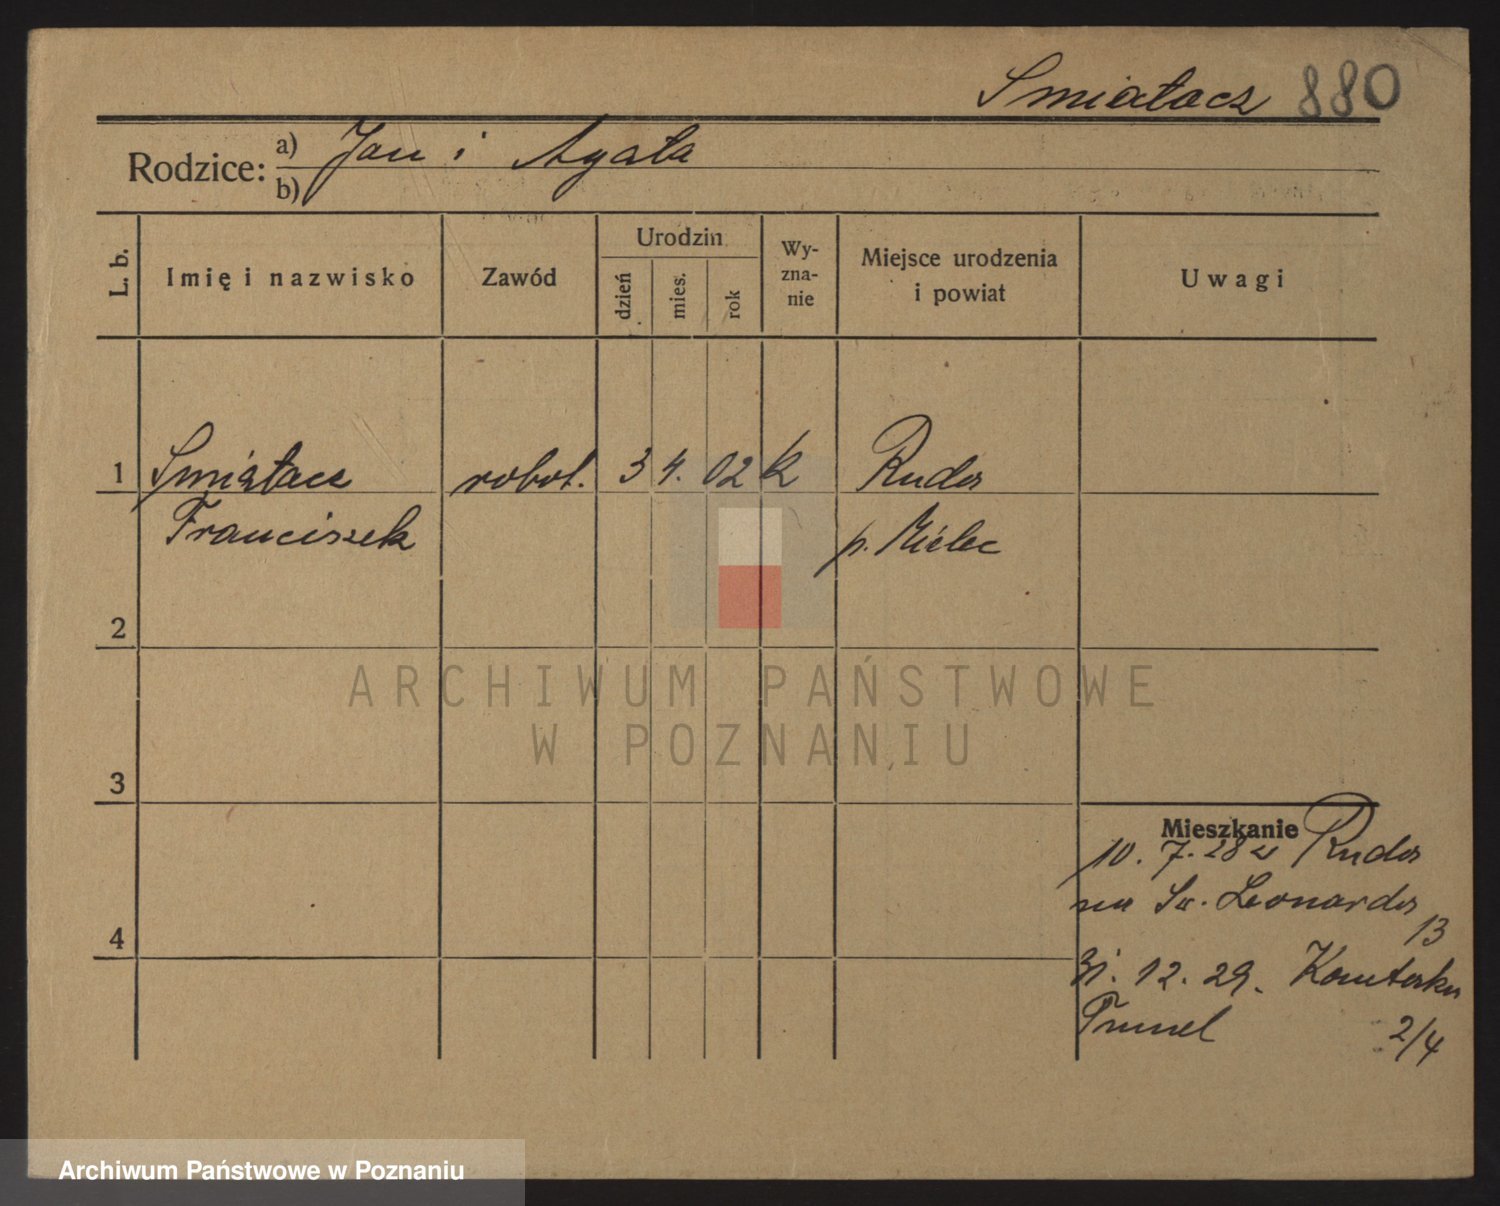 Smiatacz 880
Rodzice: a) Jan i Agata
b)
L. b.
Imię i nazwisko
Zawód
Urodzin
dzień
mies.
rok
Wy-
zna-
nie
Miejsce urodzenia
i powiat
Uwagi
1 Smiatacz robot. 3 4. 02 k Ruda
Franciszek p. Mielec
2
ARCHIWUM PAŃSTWOWE
W POZNANIU
3
Mieszkanie
10. 7. 28 z Ruda
na Św. Leonarda
13
4
31. 12. 29. Kantaka
2/4
Archiwum Państwowe w Poznaniu